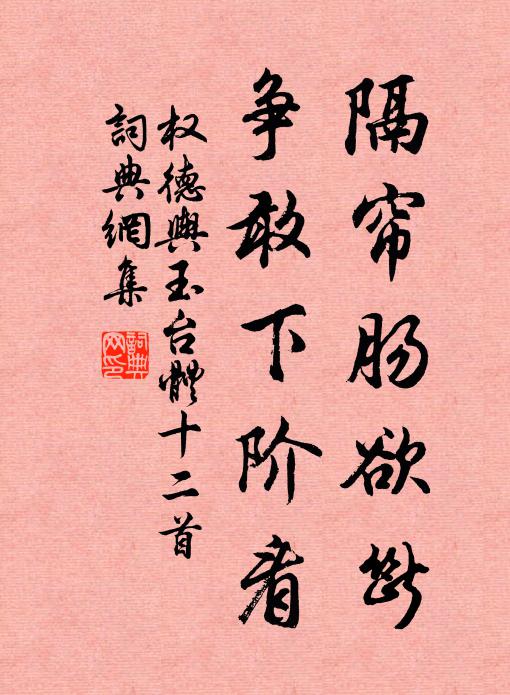 隔帘肠欲断
争敢下阶看
权德舆玉台体十二首
词典網集
詞典
网印